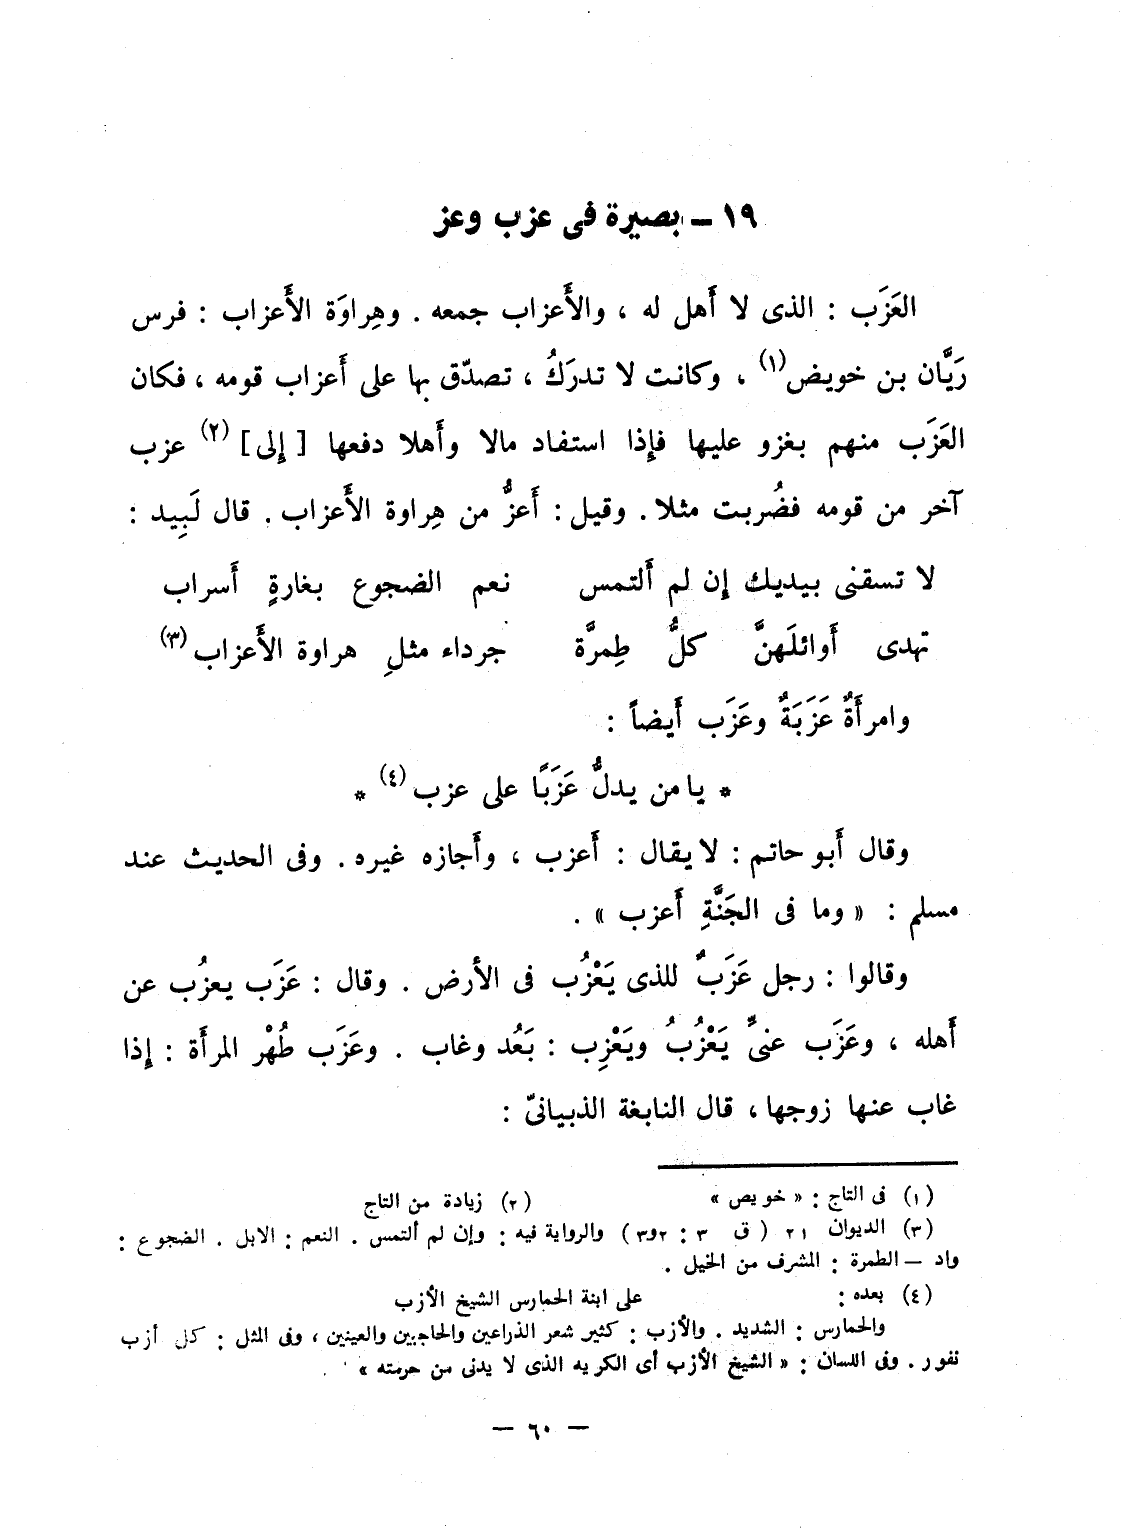 ١٩ – بصيرة فى عزب وعز
العَزَب : الذى لا أَهل له ، والأَعزاب جمعه . وهِراوَة الأَعزاب : فرس
رَيَّان بن خويض(١) ، وكانت لا تدرَكُ ، تصدّق بها على أَعزاب قومه ، فكان
العَزَب منهم يغزو عليها فإِذا استفاد مالا وأَهلا دفعها [ إِلى ](٢) عزب
آخر من قومه فضُربت مثلا . وقيل : أَعزُّ من هِراوة الأَعزاب . قال لَبِيد :
لا تسقنى بيديك إِن لم أَلتمس نعم الضجوع بغارةٍ أَسراب
تهدى أَوائلَهنَّ كلُّ طِمرَّة جرداء مثلِ هراوة الأَعزاب(٣)
وامرأَةٌ عَزَبَةٌ وعَزَب أَيضاً :
* يا من يدلُّ عَزَبًا على عزب(٤) *
وقال أَبو حاتم : لا يقال : أَعزب ، وأَجازه غيره . وفى الحديث عند
مسلم : « وما فى الجَنَّةِ أَعزب » .
وقالوا : رجل عَزَبٌ للذى يَعْزُب فى الأَرض . وقال : عَزَب يعزُب عن
أَهله ، وعَزَب عنىِّ يَعْزُبُ ويَعْزِب : بَعُد وغاب . وعَزَب طُهْر المرأَة : إِذا
غاب عنها زوجها ، قال النابغة الذبيانىّ :
(١) فى التاج : « خويص » (٢) زيادة من التاج
(٣) الديوان ٢١ ( ق ٣ : ٢و٣ ) والرواية فيه : وإن لم ألتمس . النعم : الابل . الضجوع :
واد – الطمرة : المشرف من الخيل .
(٤) بعده : على ابنة الحمارس الشيخ الأزب
والحمارس : الشديد . والأزب : كثير شعر الذراعين والحاجبين والعينين ، وفى المثل : كل أزب
نفور . وفى اللسان : « الشيخ الأزب أى الكريه الذى لا يدنى من حرمته »
– ٦٠ –